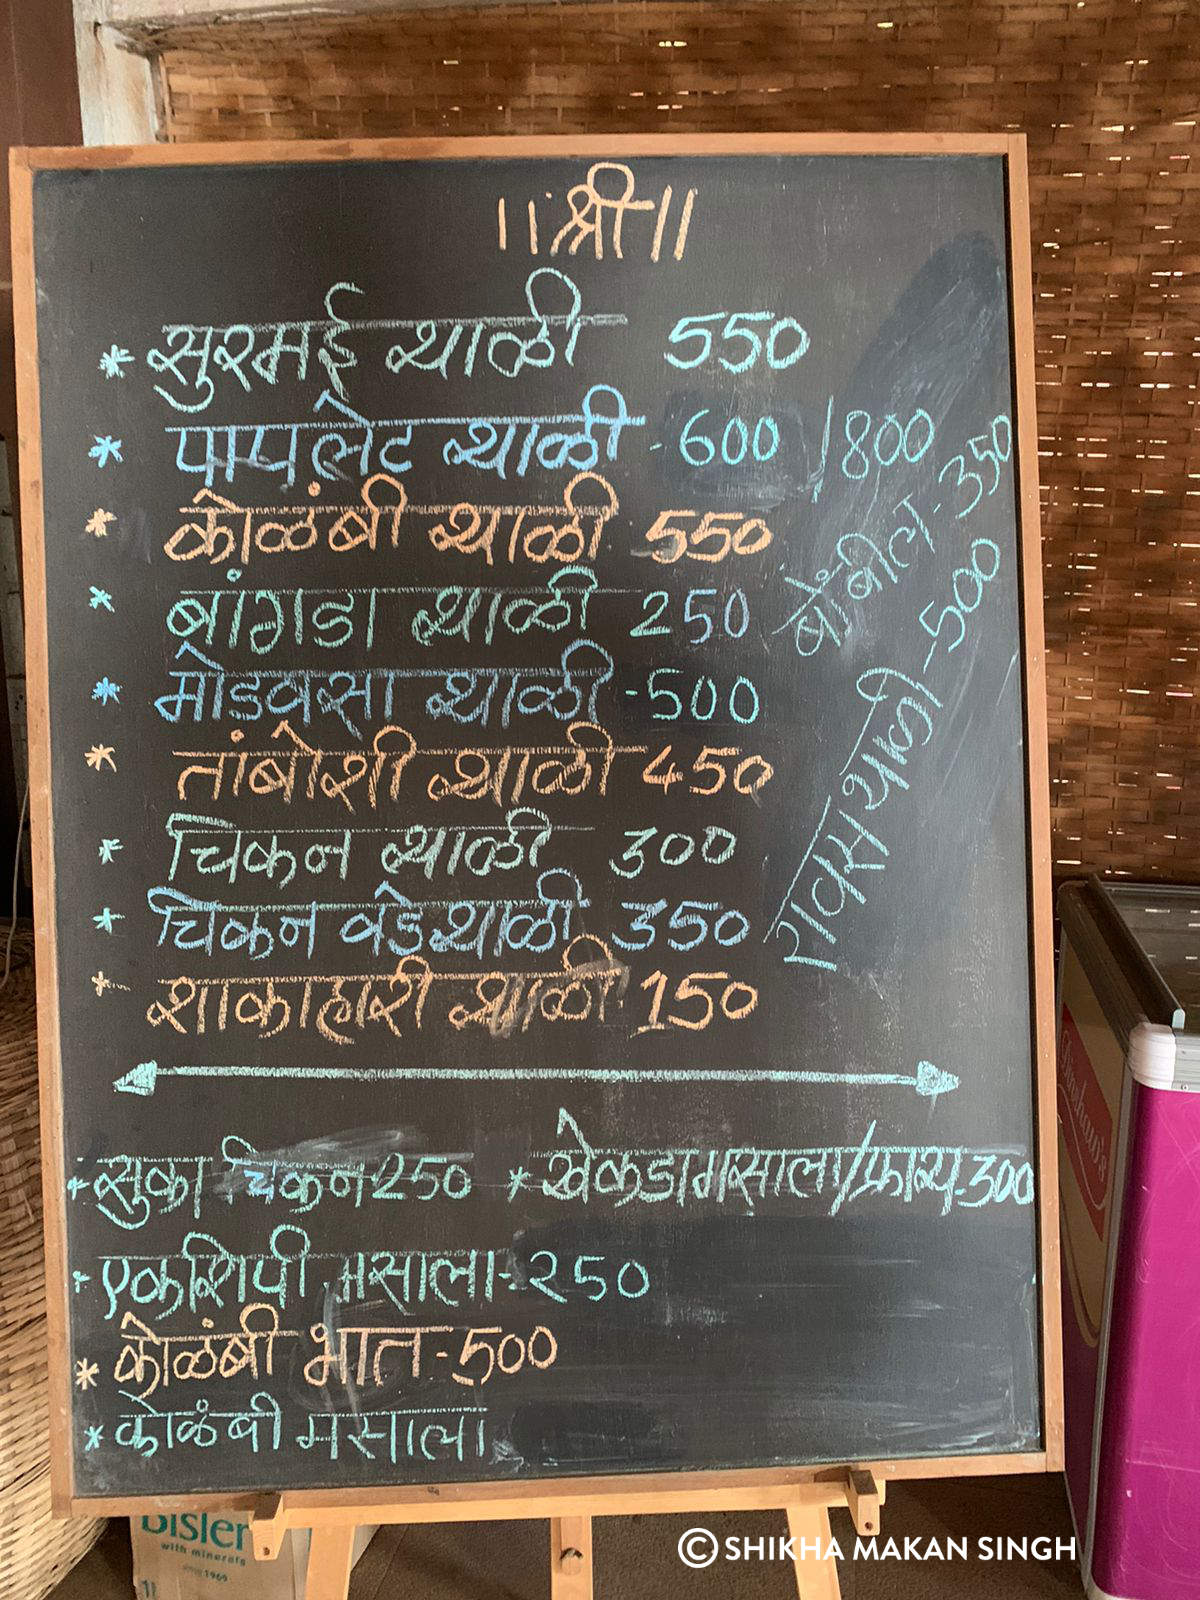 ।।श्री।।
* सुरमई थाळी 550
* पापलेट थाळी - 600 / 800
* कोळंबी थाळी 550
* बांगडा थाळी 250
* मोडवसा थाळी - 500
* तांबोशी थाळी 450
* चिकन थाळी 300
* चिकन वडे थाळी 350
* शाकाहारी थाळी 150
बोंबील - 350
रावस थाळी - 500
* सुका चिकन 250 * खेकडा मसाला/फ्राय - 300
* एकशिपी मसाला - 250
* कोळंबी भात - 500
* कोळंबी मसाला
Bisler
with minerals
1969
©SHIKHA MAKAN SINGH